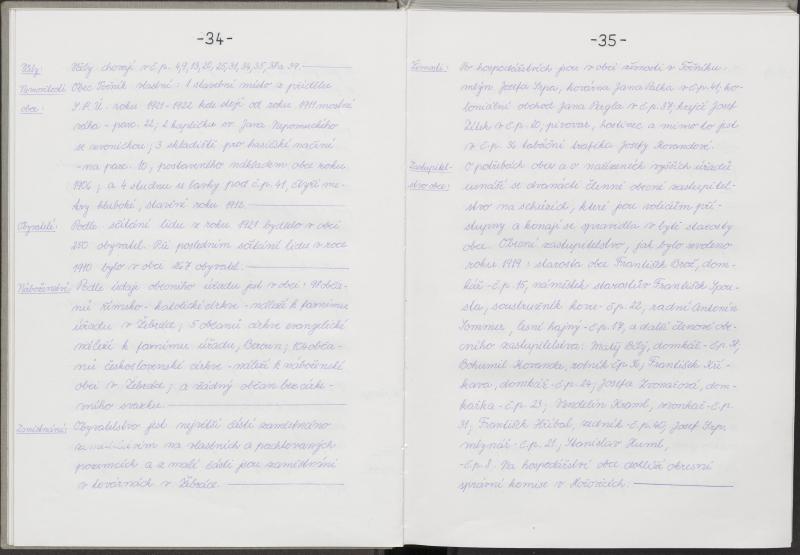 -34-
Včely: Včely chovají v č.p. 4,9,13,20,25,31,34,35,38 a 39.
Nemovitosti Obec Točník vlastní: 1 stavební místo z přídělu
obce: S.P.Ú. roku 1921-1922 kde stojí od roku 1911 mostní
váha - parc. 22; 2 kapličku sv. Jana Nepomuckého
se zvoničkou; 3 skladiště pro hasičské náčiní
- na parc. 10, postaveného nákladem obce roku
1906; a 4 studnu se lavky pod č.p. 41, čtyři me-
try hluboké, stavěné roku 1912.
Obyvatelé: Podle sčítání lidu z roku 1921 bydlelo v obci
250 obyvatel. Při posledním sčítání lidu v roce
1910 bylo v obci 267 obyvatel.
Náboženství: Podle údajů obecního úřadu jest v obci: 91 obča-
nů římsko-katolické církve - náleží k farnímu
úřadu v Žebráce; 5 občanů církve evangelické
náleží k farnímu úřadu, Beroun; 154 obča-
nů československé církve - náleží k náboženské
obci v Žebráce; a žádný občan bez círke-
vního svazku.
Zaměstnání: Obyvatelstvo jest největší částí zaměstnáno
na vlastních a pachtovaných
pozemcích a z malé části jsou zaměstnáni
v továrnách v Žebráce.
-35-
Živnosti: Po hospodářstvích jsou v obci živnosti v Točníku:
mlýn Josefa Sypa, kovárna Jana Palka v č.p. 41, ko-
loniální obchod Jana Pergla v č.p. 37, krejčí Josef
Žilek v č.p. 20; pivovar, hostinec a mimo to jest
v č.p. 36 tabáční trafika Josefy Horandové.
Zastupitel- O potřebách obce a o nařízeních vyšších úřadů
stvo obce: usnáší se dvanácti členné obecné zastupitel-
stvo na schůzích, které jsou voličům pří-
stupny a konají se zpravidla v bytě starosty
obce. Obecní zastupitelstvo, jak bylo zvoleno
roku 1919: starosta obce František Brož, dom-
kář - č.p. 15, náměstek starostův František Spou-
sta, soustružník kovů - č.p. 22, radní Antonín
Sommer, lesní hajný - č.p. 17, a další členové obe-
cního zastupitelstva: Matěj Bílý, domkář - č.p. 38,
Bohumil Horanda, rolník č.p. 36; František Kří-
kava, domkář - č.p. 24; Josefa Zvonařová, dom-
kářka - č.p. 23; Vendelín Kraml, cvonkař - č.p.
31; František Hřibal, zedník - č.p. 40; Josef Syp,
mlynář - č.p. 21, Stanislav Huml,
- č.p. 8. Na hospodářství obce dohlíží okresní
správní komise v Hořovicích.